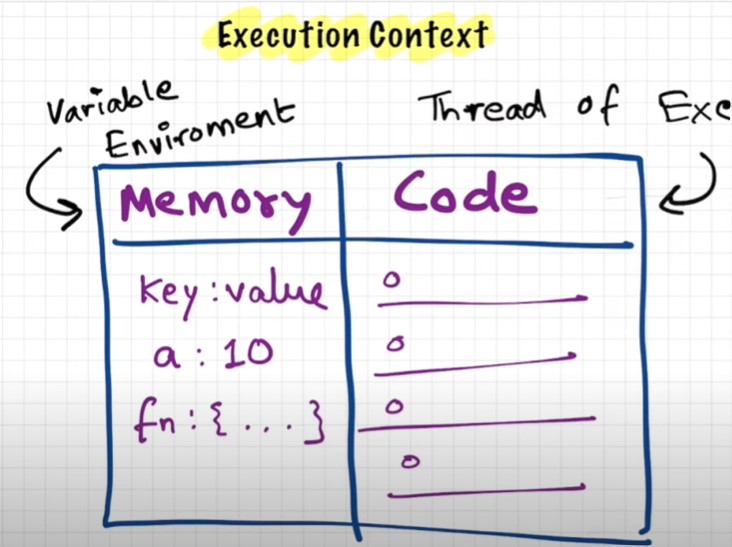 Execution Context
Variable
Enviroment
Thread of Exe
Memory
Code
key : value
a : 10
fn : { ... }